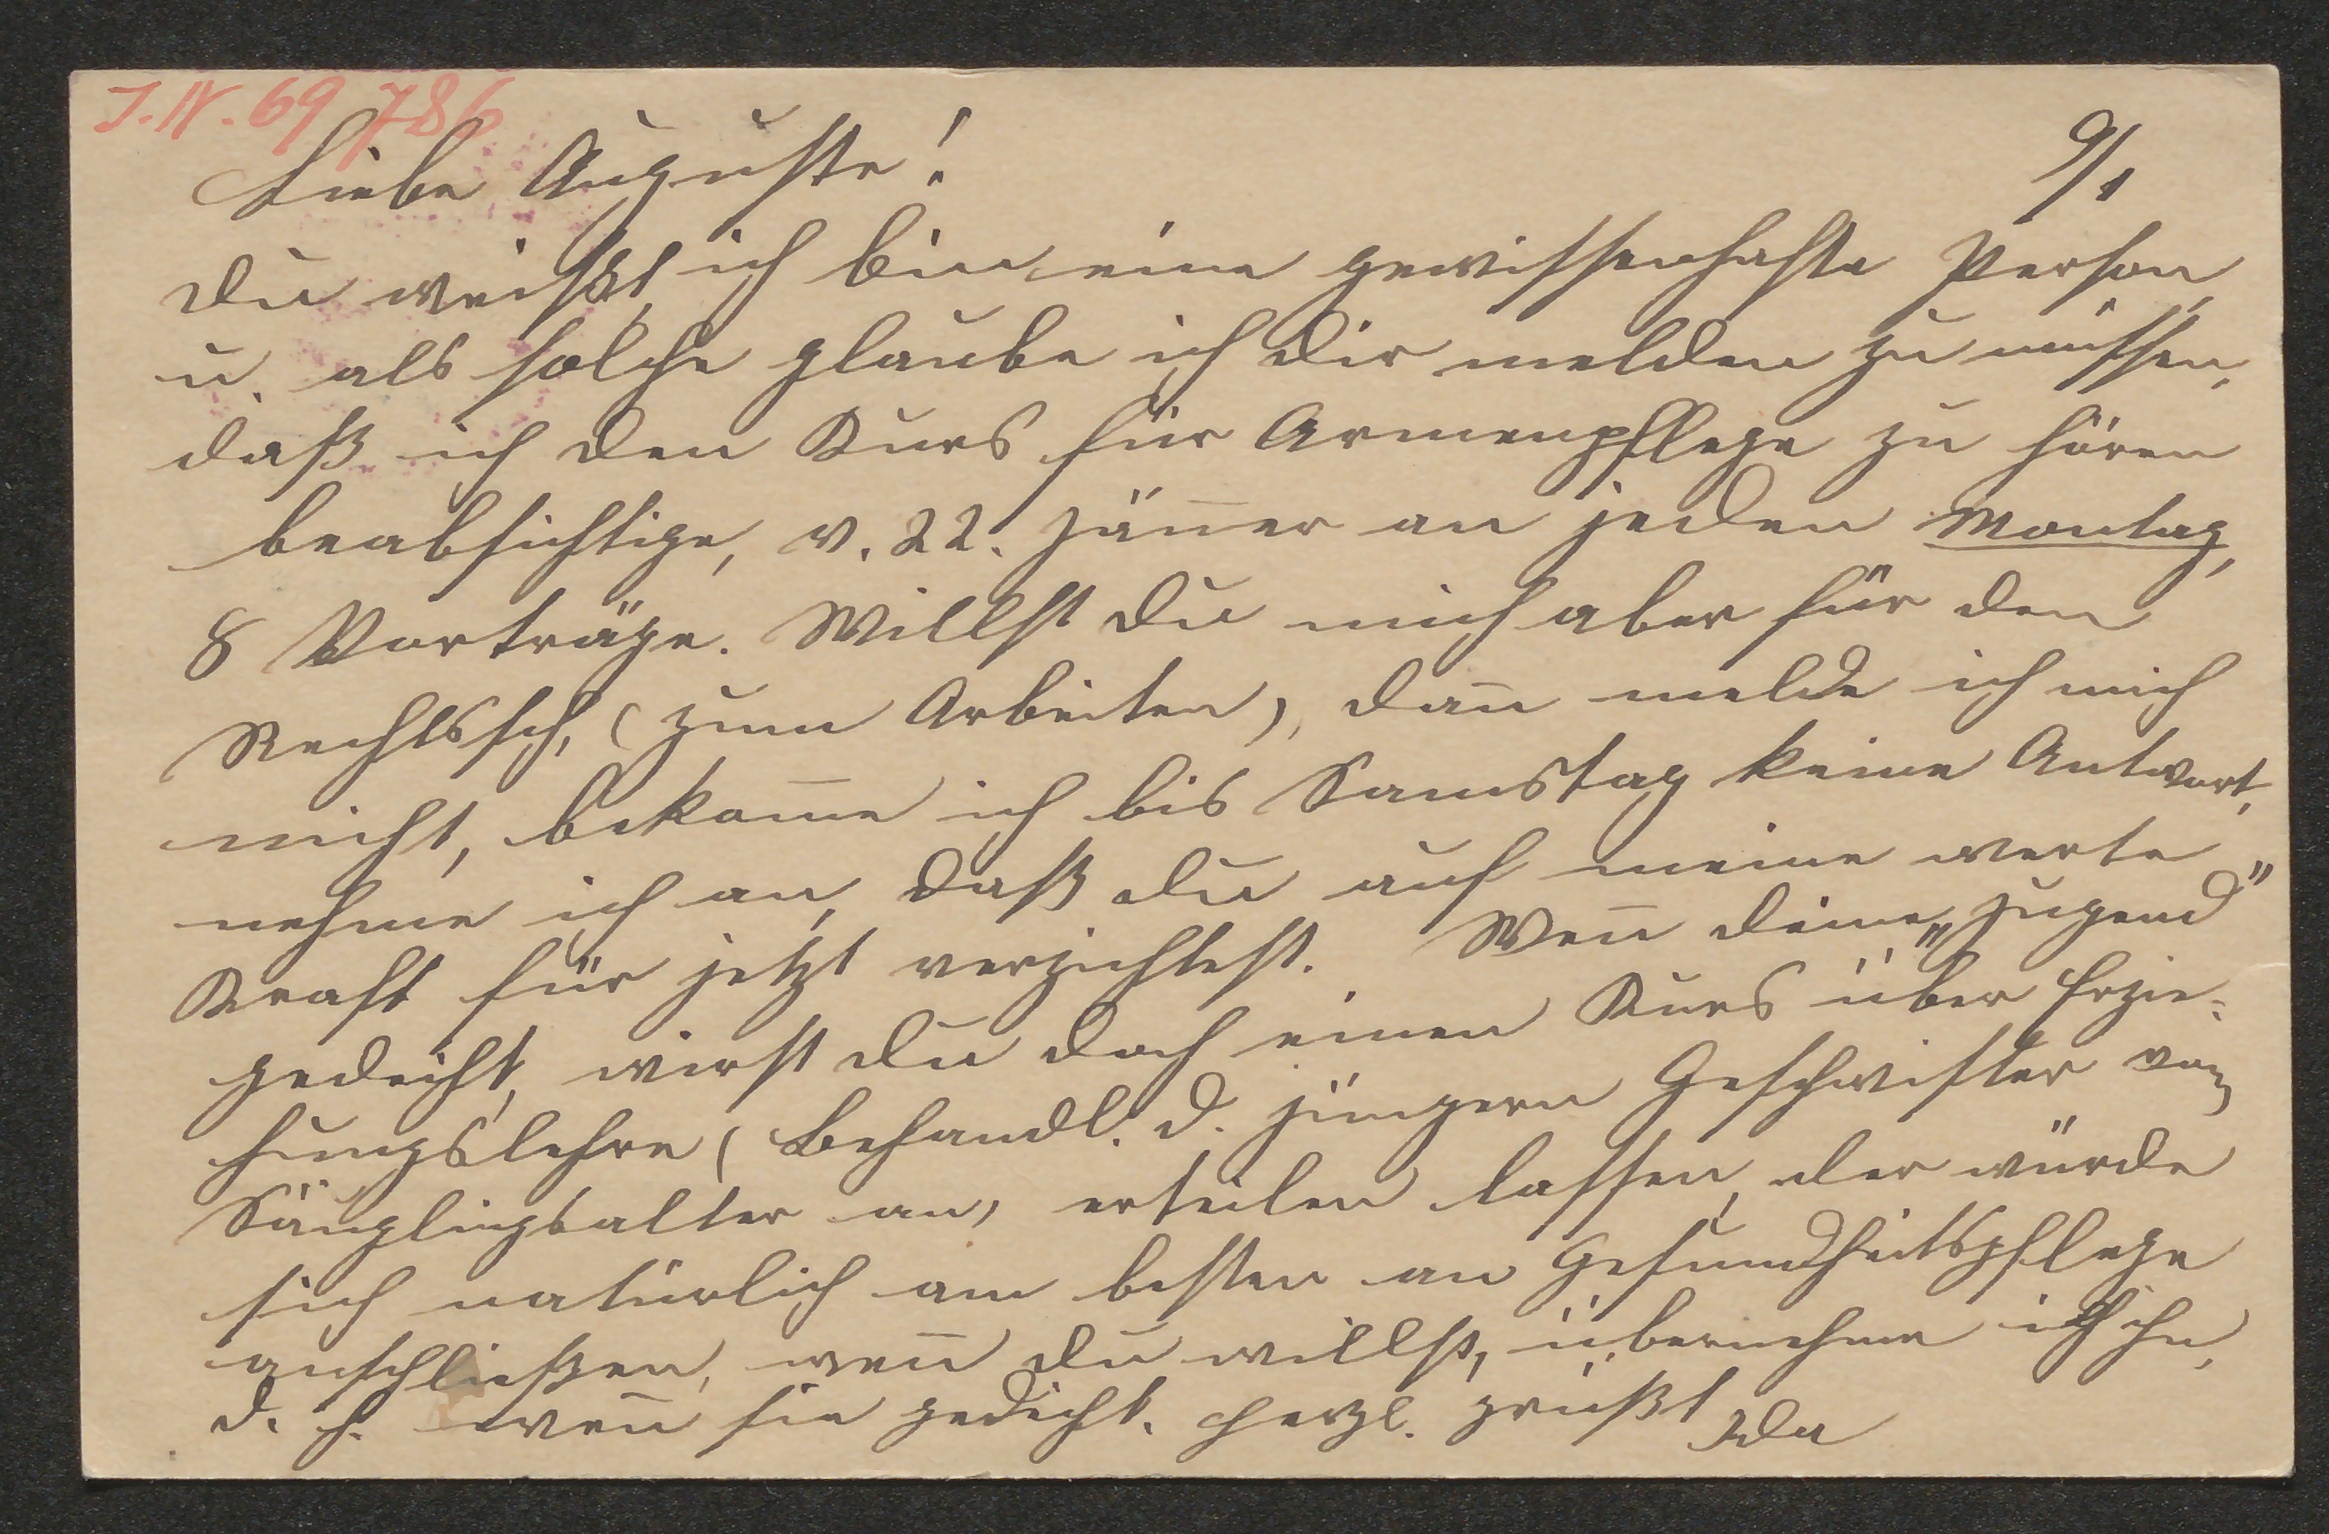 J.N. 69 786
9/1
Liebe Auguste!
Du weißt, ich bin eine gewissenhafte Person,
u. als solche glaube ich dir melden zu müssen,
daß ich den Kurs für Armenpflege zu hören
beabsichtige, v. 22. Jän̄er an jeden Montag,
8 Vorträge. Willst du mich aber für den
Rechtssch. (zum Arbeiten), dan̄ melde ich mich
nicht, bekom̄e ich bis Samstag keine Antwort,
nehme ich an, daß du auf meine werte
Kraft für jetzt verzichtest. Wen̄ deine „Jugend"
gedeiht, wirst du doch einen Kurs über Erzie-
hungslehre (Behandl. d. jüngern Geschwister vom
Säuglingsalter an) erteilen lassen, der würde
sich natürlich am besten an Gesundheitspflege
anschließen, wen̄ du willst, übernehme ich ihn,
d. h. wen̄ sie gedeiht. Herzl. grüßt Ida